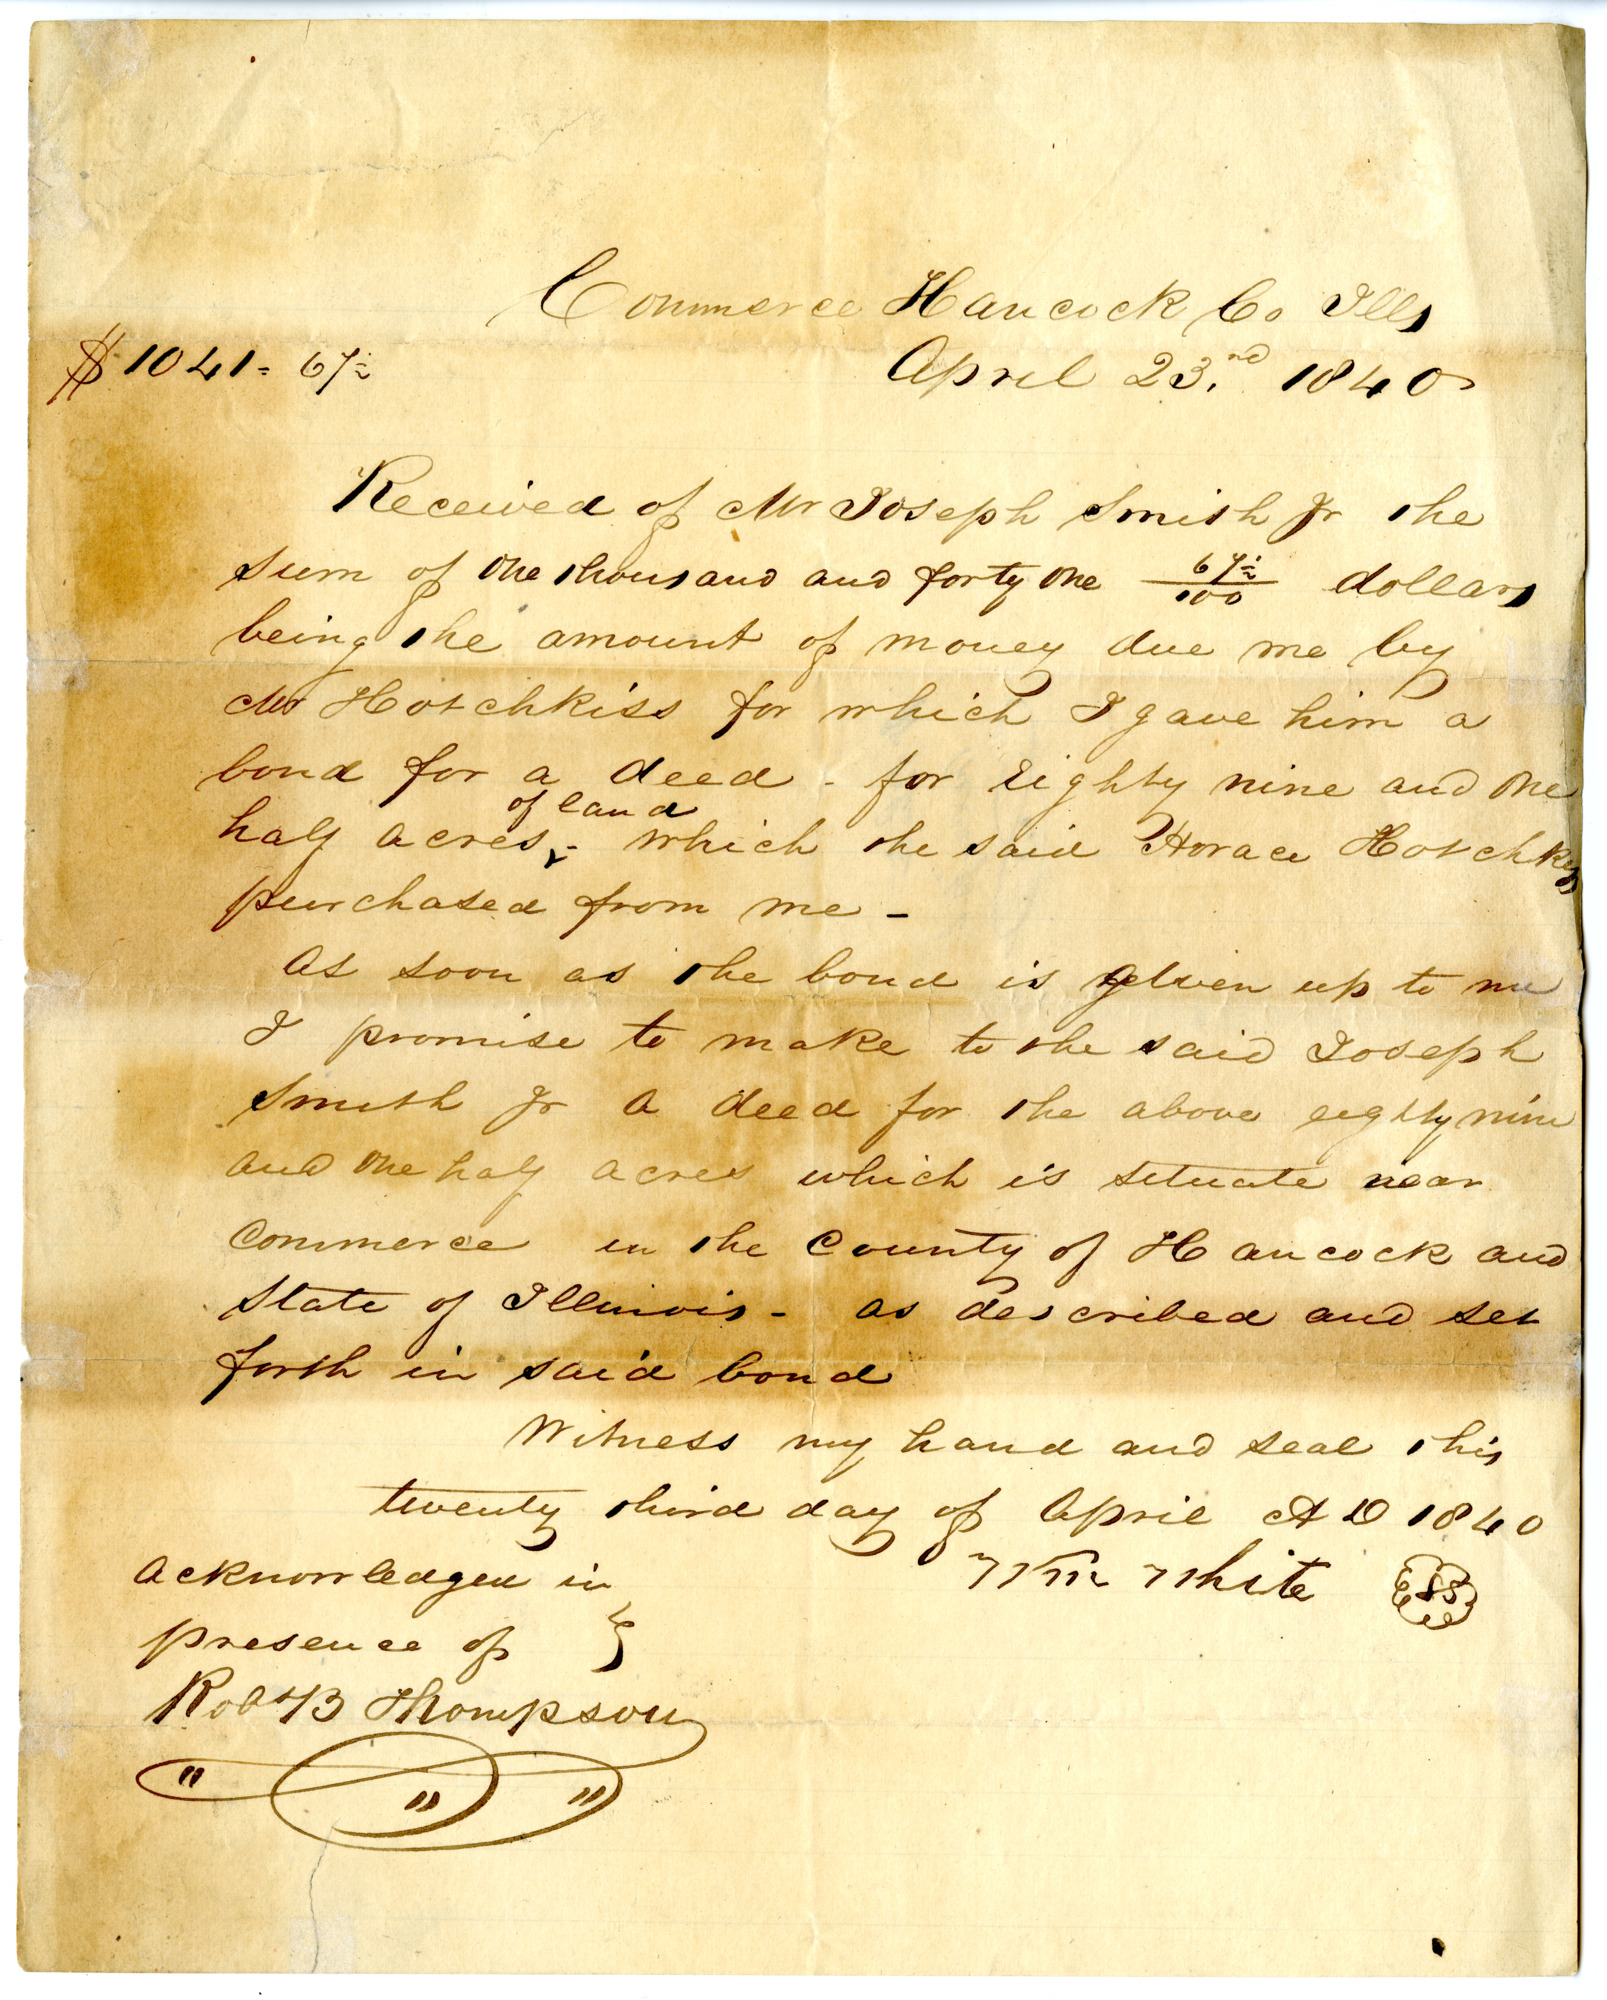 Commerce Hancock Co Ills
$1041= 67½ April 23.nd 1840
Received of Mr Joseph Smith Jr the
sum of One thousand and forty one 67½/100 dollars
being the amount of money due me by
Mr Hotchkiss for which I gave him a
bond for a deed - for Eighty nine and one
of land
half acres - which the said Horace Hotchkiss
purchased from me -
As soon as the bond is given up to me
I promise to make to the said Joseph
Smith Jr a deed for the above eighty nine
and one half acres which is situate near
Commerce in the County of Hancock and
State of Illinois - as described and set
forth in said bond
Witness my hand and seal this
twenty third day of April A D 1840
Wm White SS
Acknowledged in
presence of }
Robt B Thompson